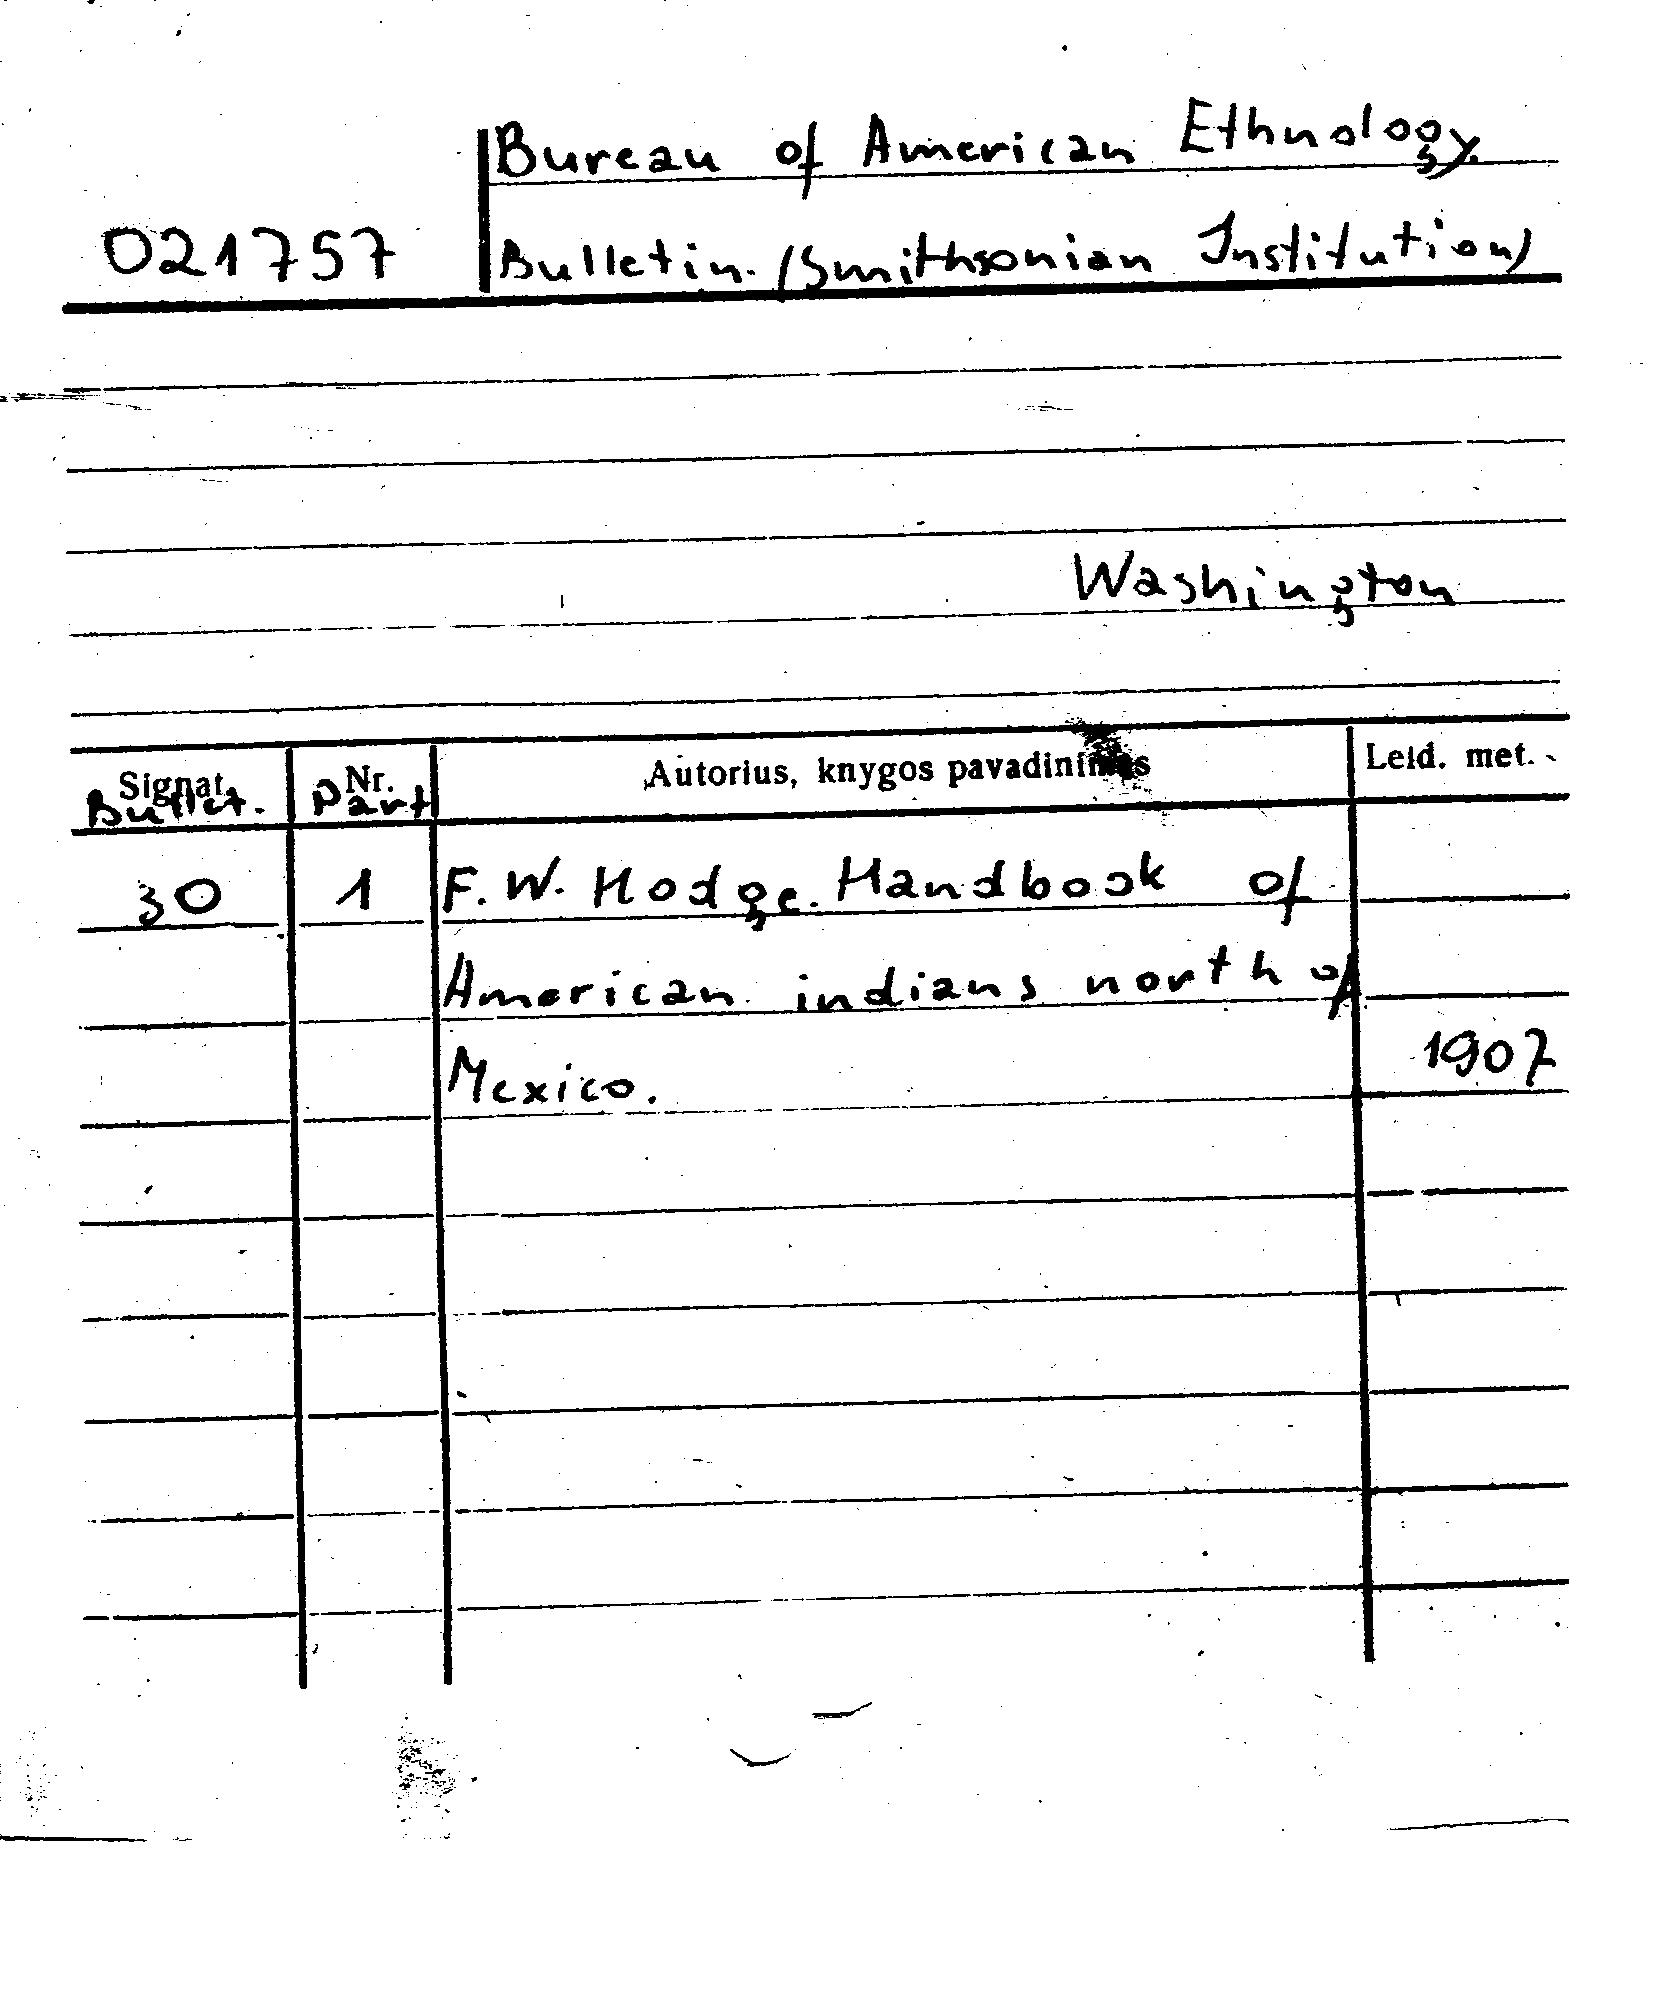 Bureau of American Ethnology.
021757 Bulletin. (Smithsonian Institution)
Washington
Signat. Nr. Autorius, knygos pavadinimas Leid. met.
Bullet. Part
30 1 F. W. Hodge. Handbook of
American indians north of
Mexico. 1907